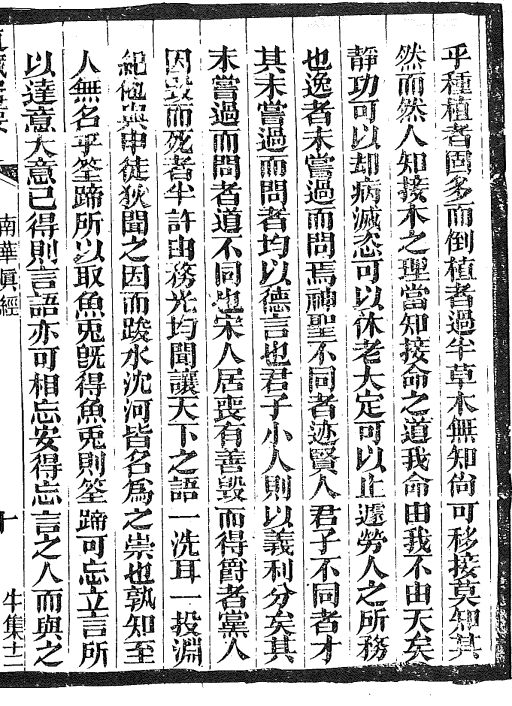 乎種植者固多而倒植者過半草木無知尙可移接莫知其
然而然人知接木之理當知接命之道我命由我不由天矣
靜功可以却病滅恣可以休老大定可以止遽勞人之所務
也逸者未嘗過而問焉神聖不同者迹賢人君子不同者才
其未嘗過而問者均以德言也君子小人則以義利分矣其
未嘗過而問者道不同也宋人居喪有善毀而得爵者黨人
因毀而死者半許由務光均聞讓天下之語一洗耳一投淵
紀他與申徒狄聞之因而踆水沈河皆名爲之祟也孰知至
人無名乎筌蹄所以取魚兎旣得魚兎則筌蹄可忘立言所
以達意大意已得則言語亦可相忘安得忘言之人而與之
南華眞經
十
牛集十二